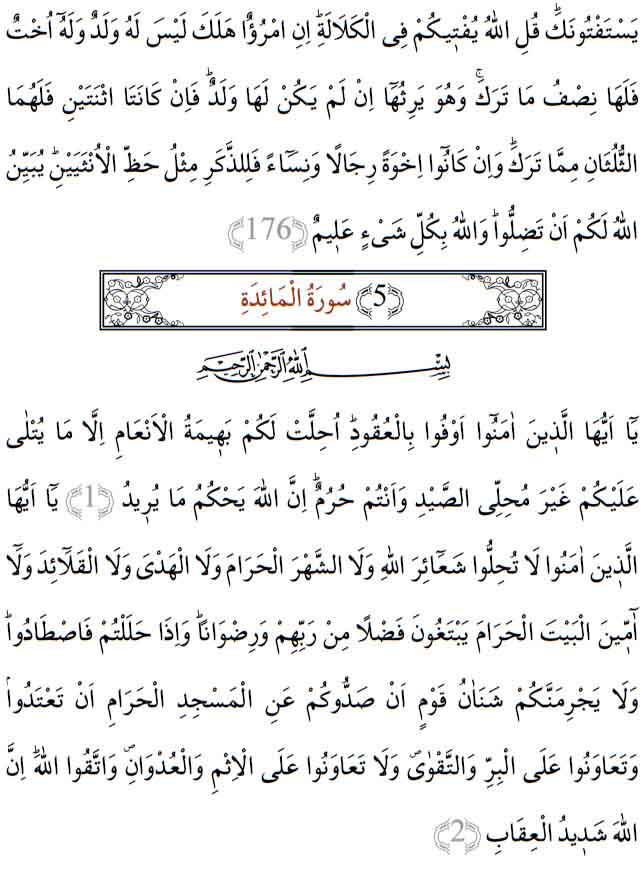 يَسْتَفْتُونَكَۜ قُلِ اللّٰهُ يُفْت۪يكُمْ فِي الْكَلَالَةِۜ اِنِ امْرُؤٌا هَلَكَ لَيْسَ لَهُ وَلَدٌ وَلَهُٓ اُخْتٌ
فَلَهَا نِصْفُ مَا تَرَكَۚ وَهُوَ يَرِثُهَٓا اِنْ لَمْ يَكُنْ لَهَا وَلَدٌۜ فَاِنْ كَانَتَا اثْنَتَيْنِ فَلَهُمَا
الثُّلُثَانِ مِمَّا تَرَكَۜ وَاِنْ كَانُٓوا اِخْوَةً رِجَالًا وَنِسَٓاءً فَلِلذَّكَرِ مِثْلُ حَظِّ الْاُنْثَيَيْنِۜ يُبَيِّنُ
اللّٰهُ لَكُمْ اَنْ تَضِلُّواۜ وَاللّٰهُ بِكُلِّ شَيْءٍ عَل۪يمٌ ﴿176﴾
﴿5﴾ سُورَةُ الْمَائِدَةِ
بِسْمِ اللّٰهِ الرَّحْمٰنِ الرَّح۪يمِ
يَٓا اَيُّهَا الَّذ۪ينَ اٰمَنُٓوا اَوْفُوا بِالْعُقُودِۜ اُحِلَّتْ لَكُمْ بَه۪يمَةُ الْاَنْعَامِ اِلَّا مَا يُتْلٰى
عَلَيْكُمْ غَيْرَ مُحِلِّي الصَّيْدِ وَاَنْتُمْ حُرُمٌۜ اِنَّ اللّٰهَ يَحْكُمُ مَا يُر۪يدُ ﴿1﴾ يَٓا اَيُّهَا
الَّذ۪ينَ اٰمَنُوا لَا تُحِلُّوا شَعَٓائِرَ اللّٰهِ وَلَا الشَّهْرَ الْحَرَامَ وَلَا الْهَدْيَ وَلَا الْقَلَٓائِدَ وَلَٓا
اٰمّ۪ينَ الْبَيْتَ الْحَرَامَ يَبْتَغُونَ فَضْلًا مِنْ رَبِّهِمْ وَرِضْوَانًاۜ وَاِذَا حَلَلْتُمْ فَاصْطَادُواۜ
وَلَا يَجْرِمَنَّكُمْ شَنَاٰنُ قَوْمٍ اَنْ صَدُّوكُمْ عَنِ الْمَسْجِدِ الْحَرَامِ اَنْ تَعْتَدُواۢ
وَتَعَاوَنُوا عَلَى الْبِرِّ وَالتَّقْوٰىۖ وَلَا تَعَاوَنُوا عَلَى الْاِثْمِ وَالْعُدْوَانِۖ وَاتَّقُوا اللّٰهَۜ اِنَّ
اللّٰهَ شَد۪يدُ الْعِقَابِ ﴿2﴾